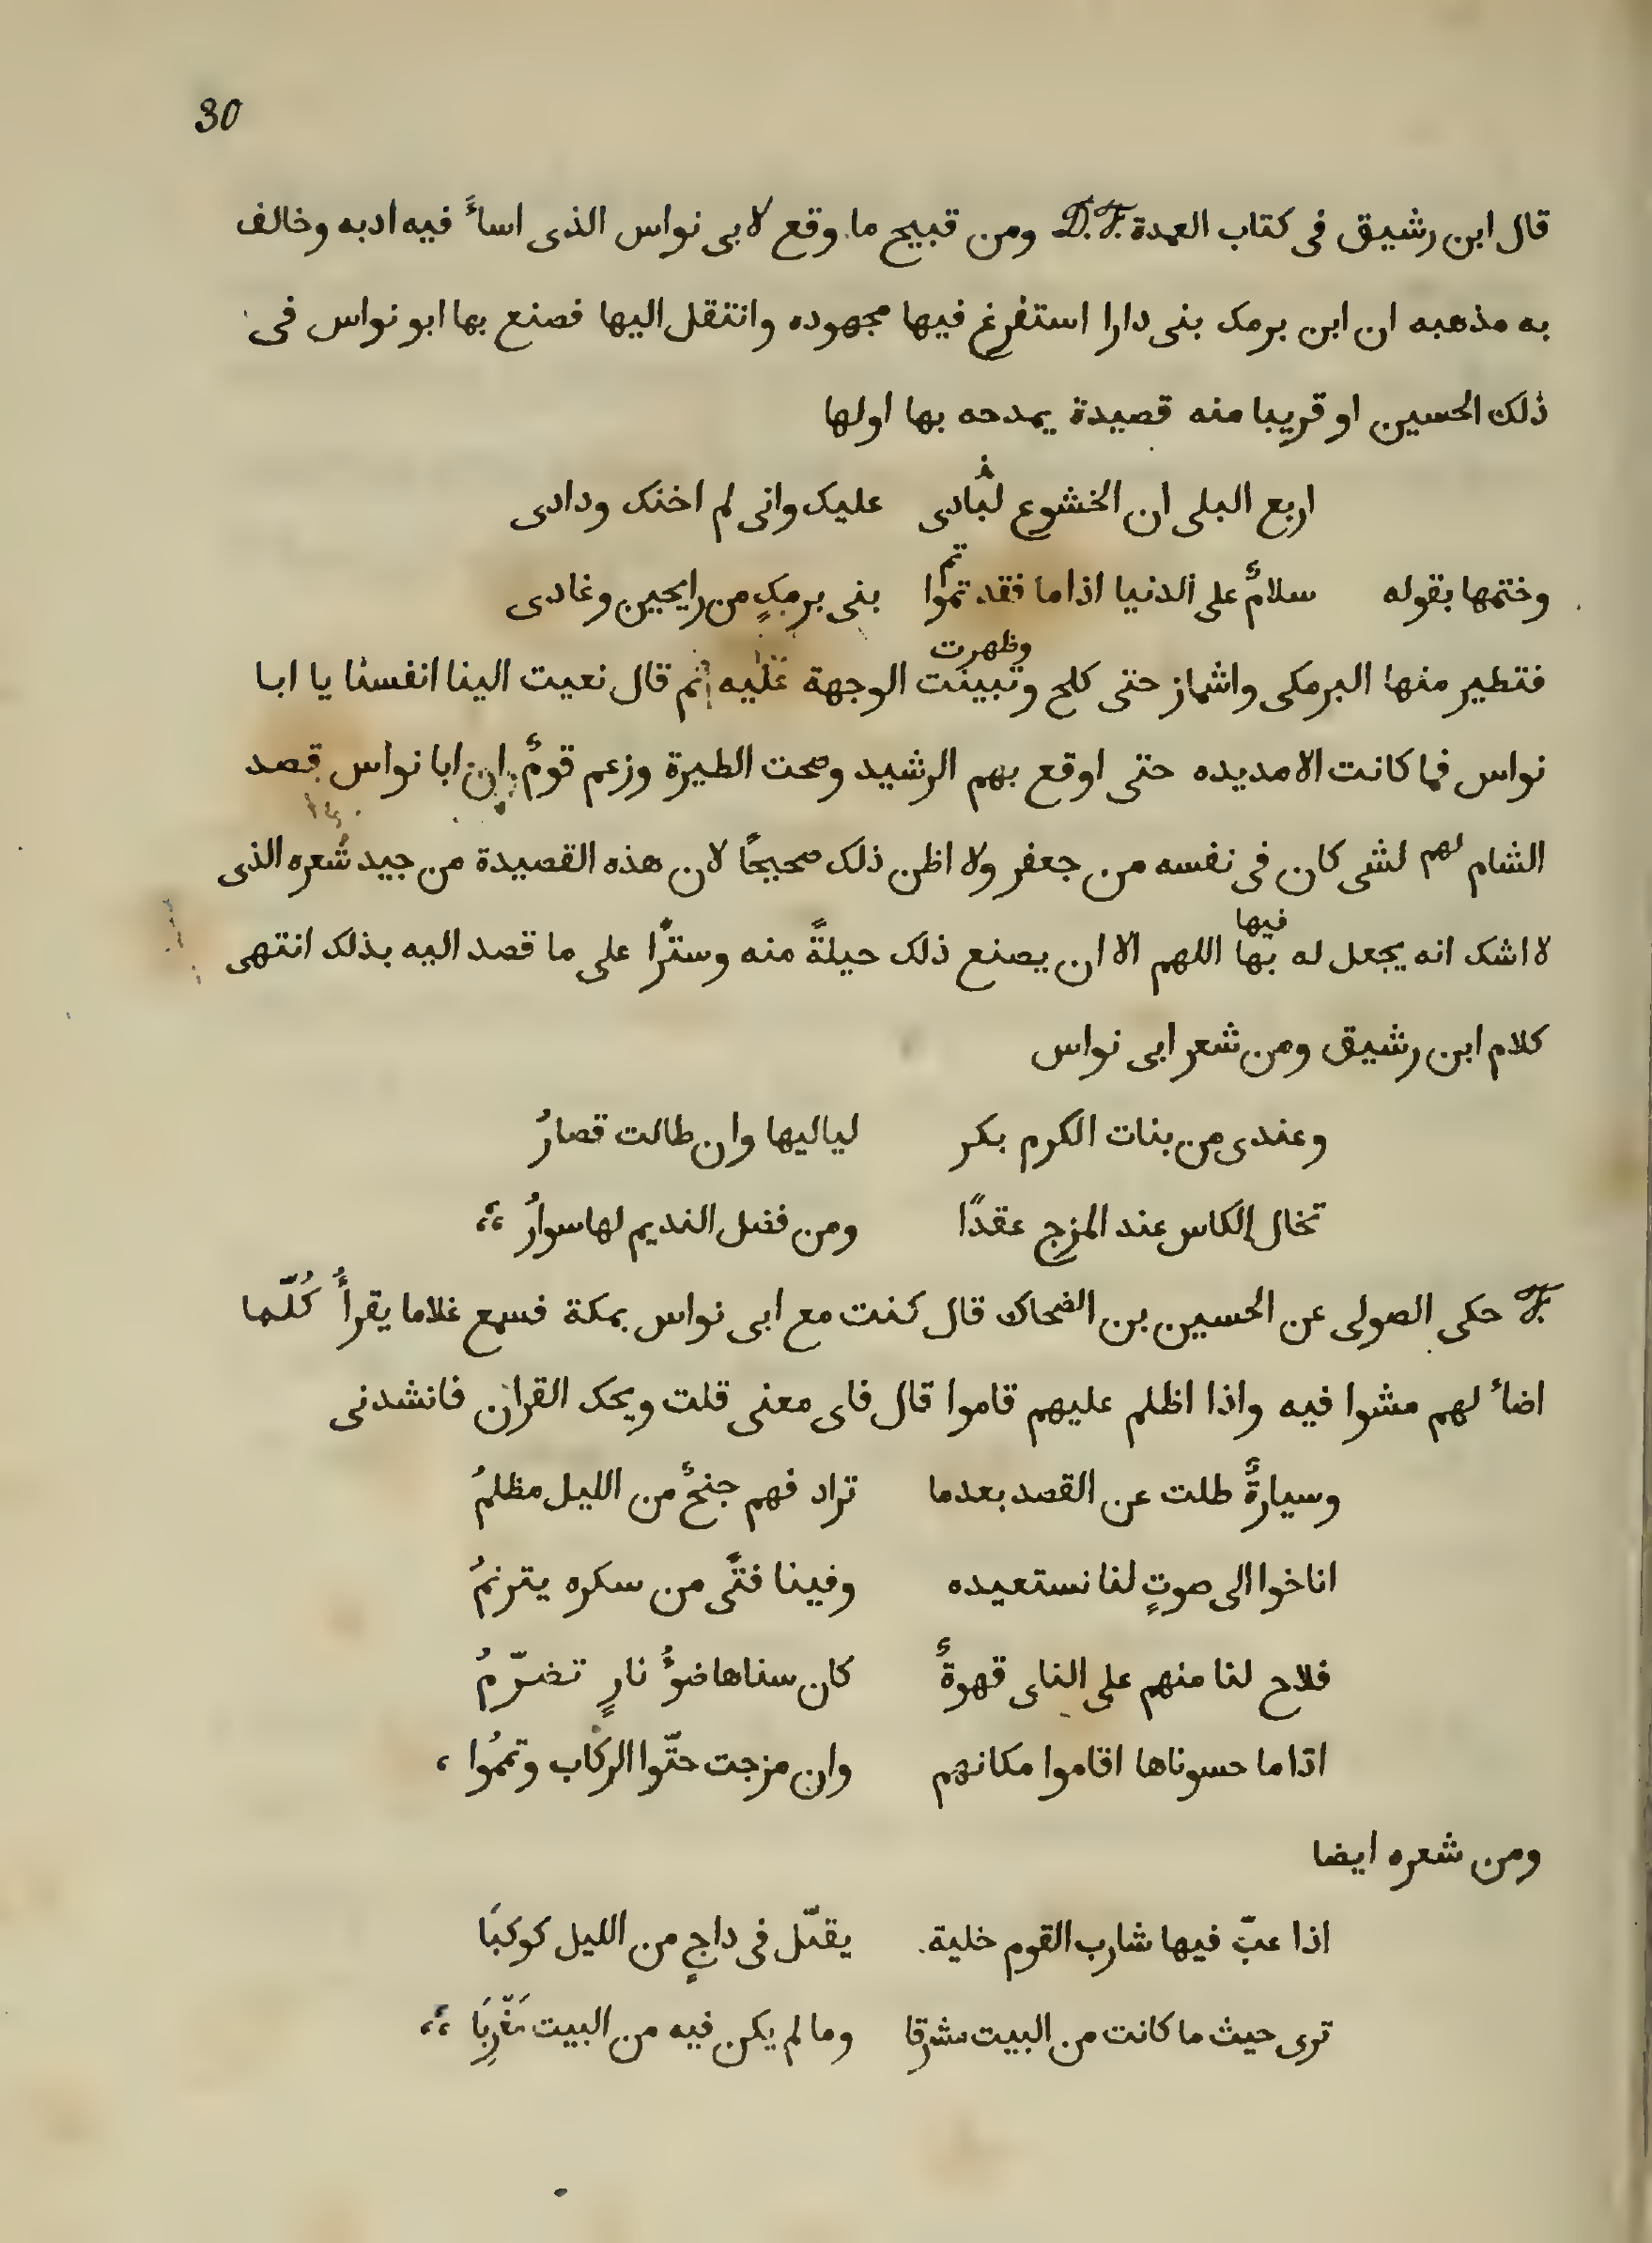 30
قال ابن رشيق فى كتاب العمدة D.F. ومن قبيح ما وقع لابى نواس الذى اساءَ فيه ادبه وخالف
به مذهبه ان ابن برمك بنى دارا استفرغ فيها مجهوده وانتقل اليها فصنع بها ابو نواس فى
ذلك الحسين او قريبا منه قصيدة يمدحه بها اولها
اربع البلى ان الخشوع لبادى عليك وانى لم اخنك ودادى
وختمها بقوله سلامٌ على الدنيا اذا ما فقدتموا بنى برمكٍ من رايحين وغادى
وظهرت
فتطير منها البرمكى واشماز حتى كلح وتبينت الوجهة عليه ثم قال نعيت الينا انفسنا يا ابا
نواس فما كانت الا مديده حتى اوقع بهم الرشيد وصحت الطيرة وزعم قومٌ ان ابا نواس قصد
الشام لهم لشى كان فى نفسه من جعفر ولا اظن ذلك صحيحًا لان هذه القصيدة من جيد شُعره الذى
فيها
لا اشك انه يجعل له بها اللهم الا ان يصنع ذلك حيلةً منه وسترًا على ما قصد اليه بذلك انتهى
كلام ابن رشيق ومن شعر ابى نواس
وعندى من بنات الكرم بكر لياليها وان طالت قصارُ
تخال الكاس عند المزج عقدًا ومن فضل النديم لها سوارُ
F. حكى الصولى عن الحسين بن الضحاك قال كنت مع ابى نواس بمكة فسمع غلاما يقرأُ كُلّما
اضاءَ لهم مشوا فيه واذا اظلم عليهم قاموا قال فاى معنى قلت ويحك القران فانشدنى
وسيارةٌ طلت عن القصد بعدما تراد فهم جنحٌ من الليل مظلمُ
اناخوا الى صوتٍ لنا نستعيده وفينا فتًى من سكره يترنمُ
فلاح لنا منهم على الناى قهوةٌ كان سناها ضؤُ نارٍ تضرّمُ
اذا ما حسوناها اقاموا مكانهم وان مزجت حتّوا الركاب وتممُوا
ومن شعره ايضا
اذا عبّ فيها شارب القوم خلية يقبّل فى داجٍ من الليل كوكبَا
ترى حيث ما كانت من البيت مشرقا وما لم يكن فيه من البيت مَغْرِبَا